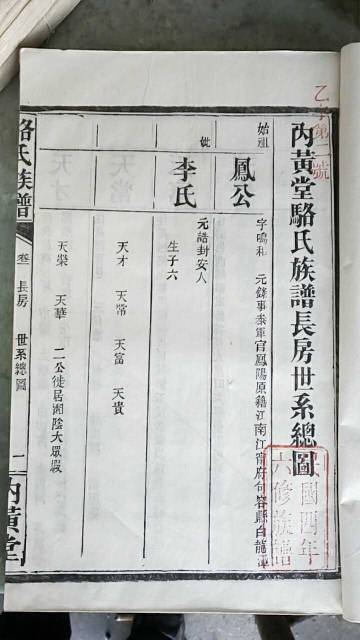 乙字第一號
內黃堂駱氏族譜長房世系總圖
民國四年
六修族譜
始祖
鳳公
字鳴和 元錄事叅軍官鳳陽原籍江南江甯府句容縣白龍潭
妣
李氏
元誥封安人
生子六
天才 天常 天富 天貴
天榮 天華 二公徙居湘陰大眾塅
駱氏族譜
卷一
長房 世系總圖
一
內黃堂